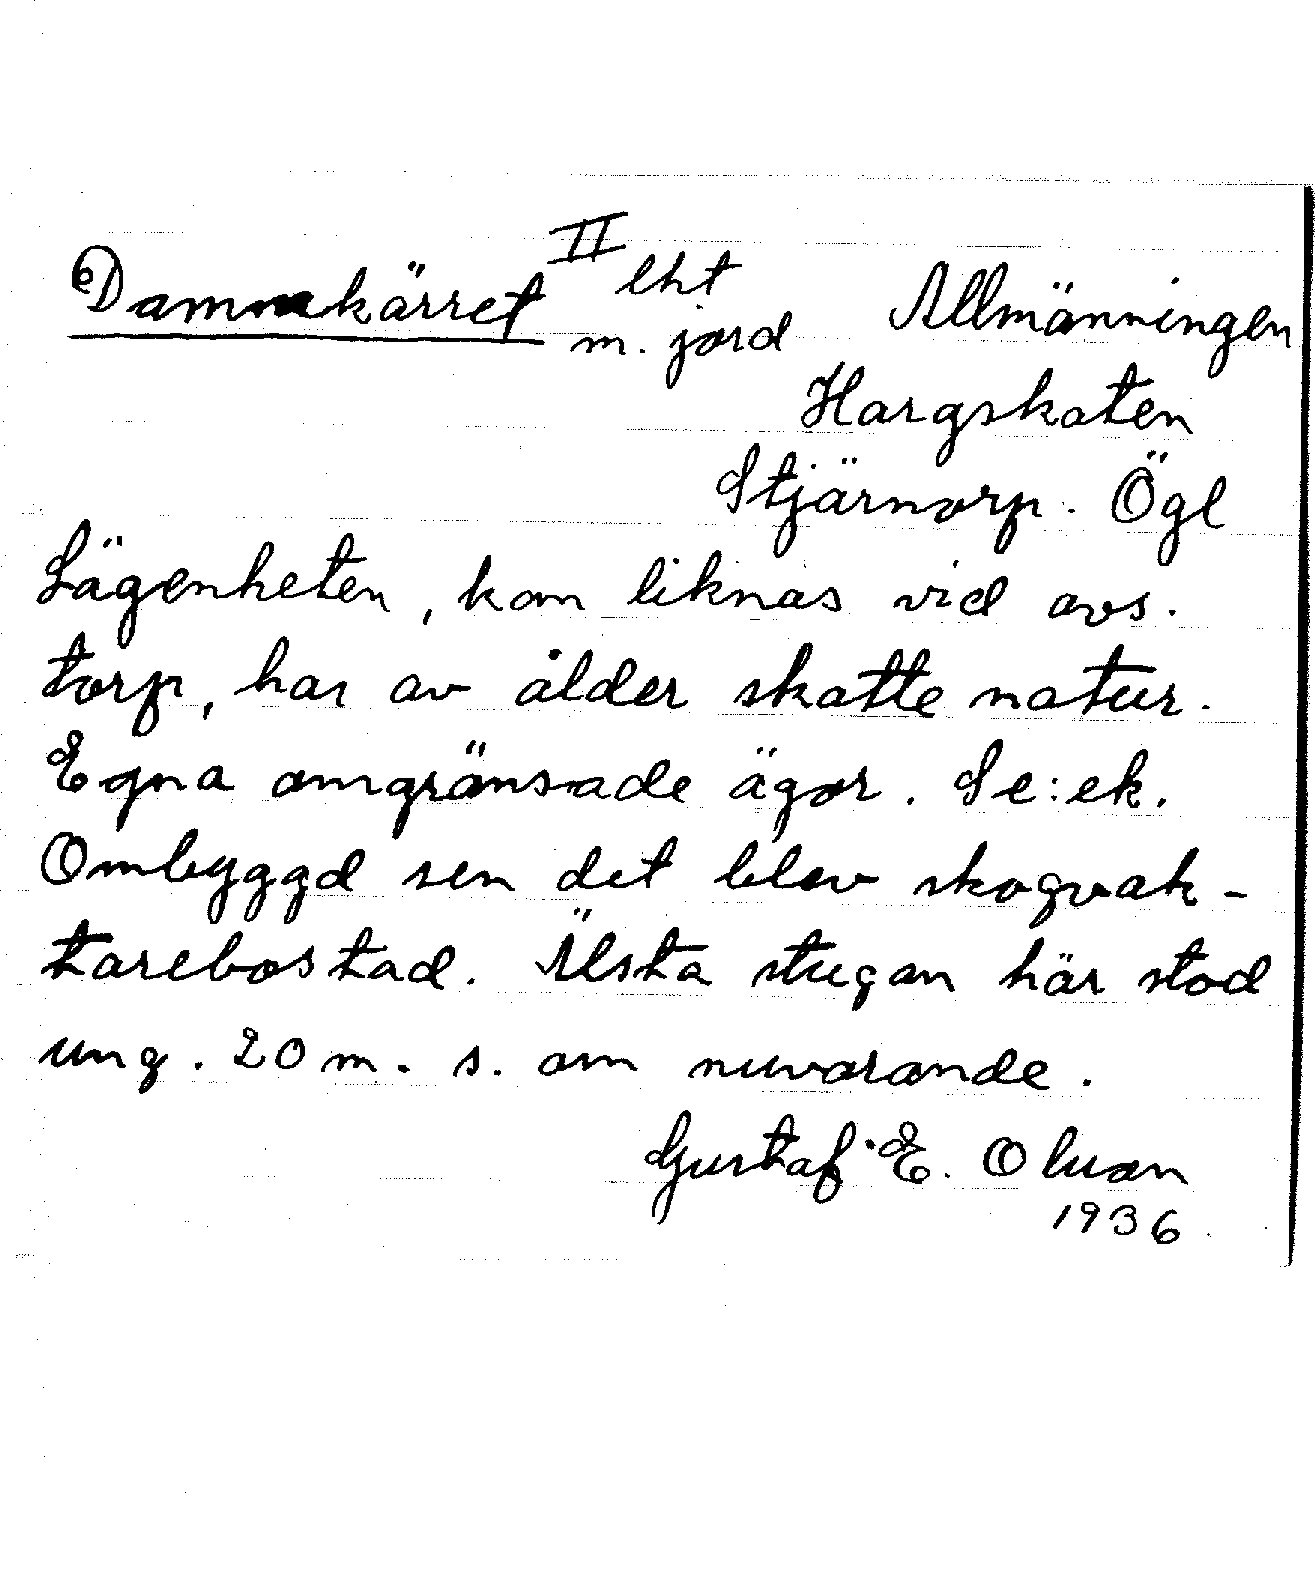 Dammkärret II lht m. jord Allmänningen
Hargskaten
Stjärnorp. Ögl
Lägenheten, kan liknas vid avs.
torp, har av ålder skatte natur.
Egna omgränsade ägor. Se: ek.
Ombyggd sen det blev skogvak-
tarebostad. Älsta stugan här stod
ung. 20 m. s. om nuvarande.
Gustaf E. Olson
1936